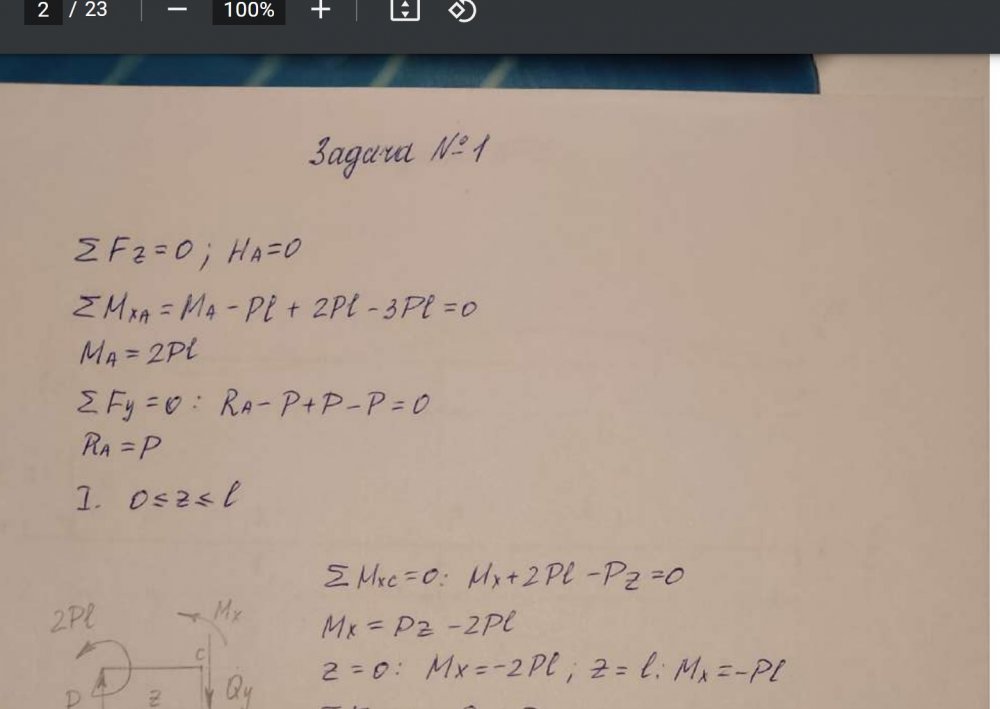 2 / 23 — 100% +
Задача №1
ΣFz=0; HA=0
ΣMxA = MA - Pl + 2Pl - 3Pl = 0
MA = 2Pl
ΣFy = 0: RA - P + P - P = 0
RA = P
I. 0 ≤ z ≤ l
ΣMxc = 0: Mx + 2Pl - Pz = 0
Mx = Pz - 2Pl
z = 0: Mx = -2Pl; z = l: Mx = -Pl
2Pl Mx
c
P z Qy